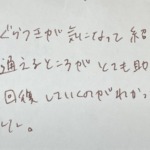 ぐらつきが気になって紹
通えるところがとても助
回復していくのがわかっ
い。